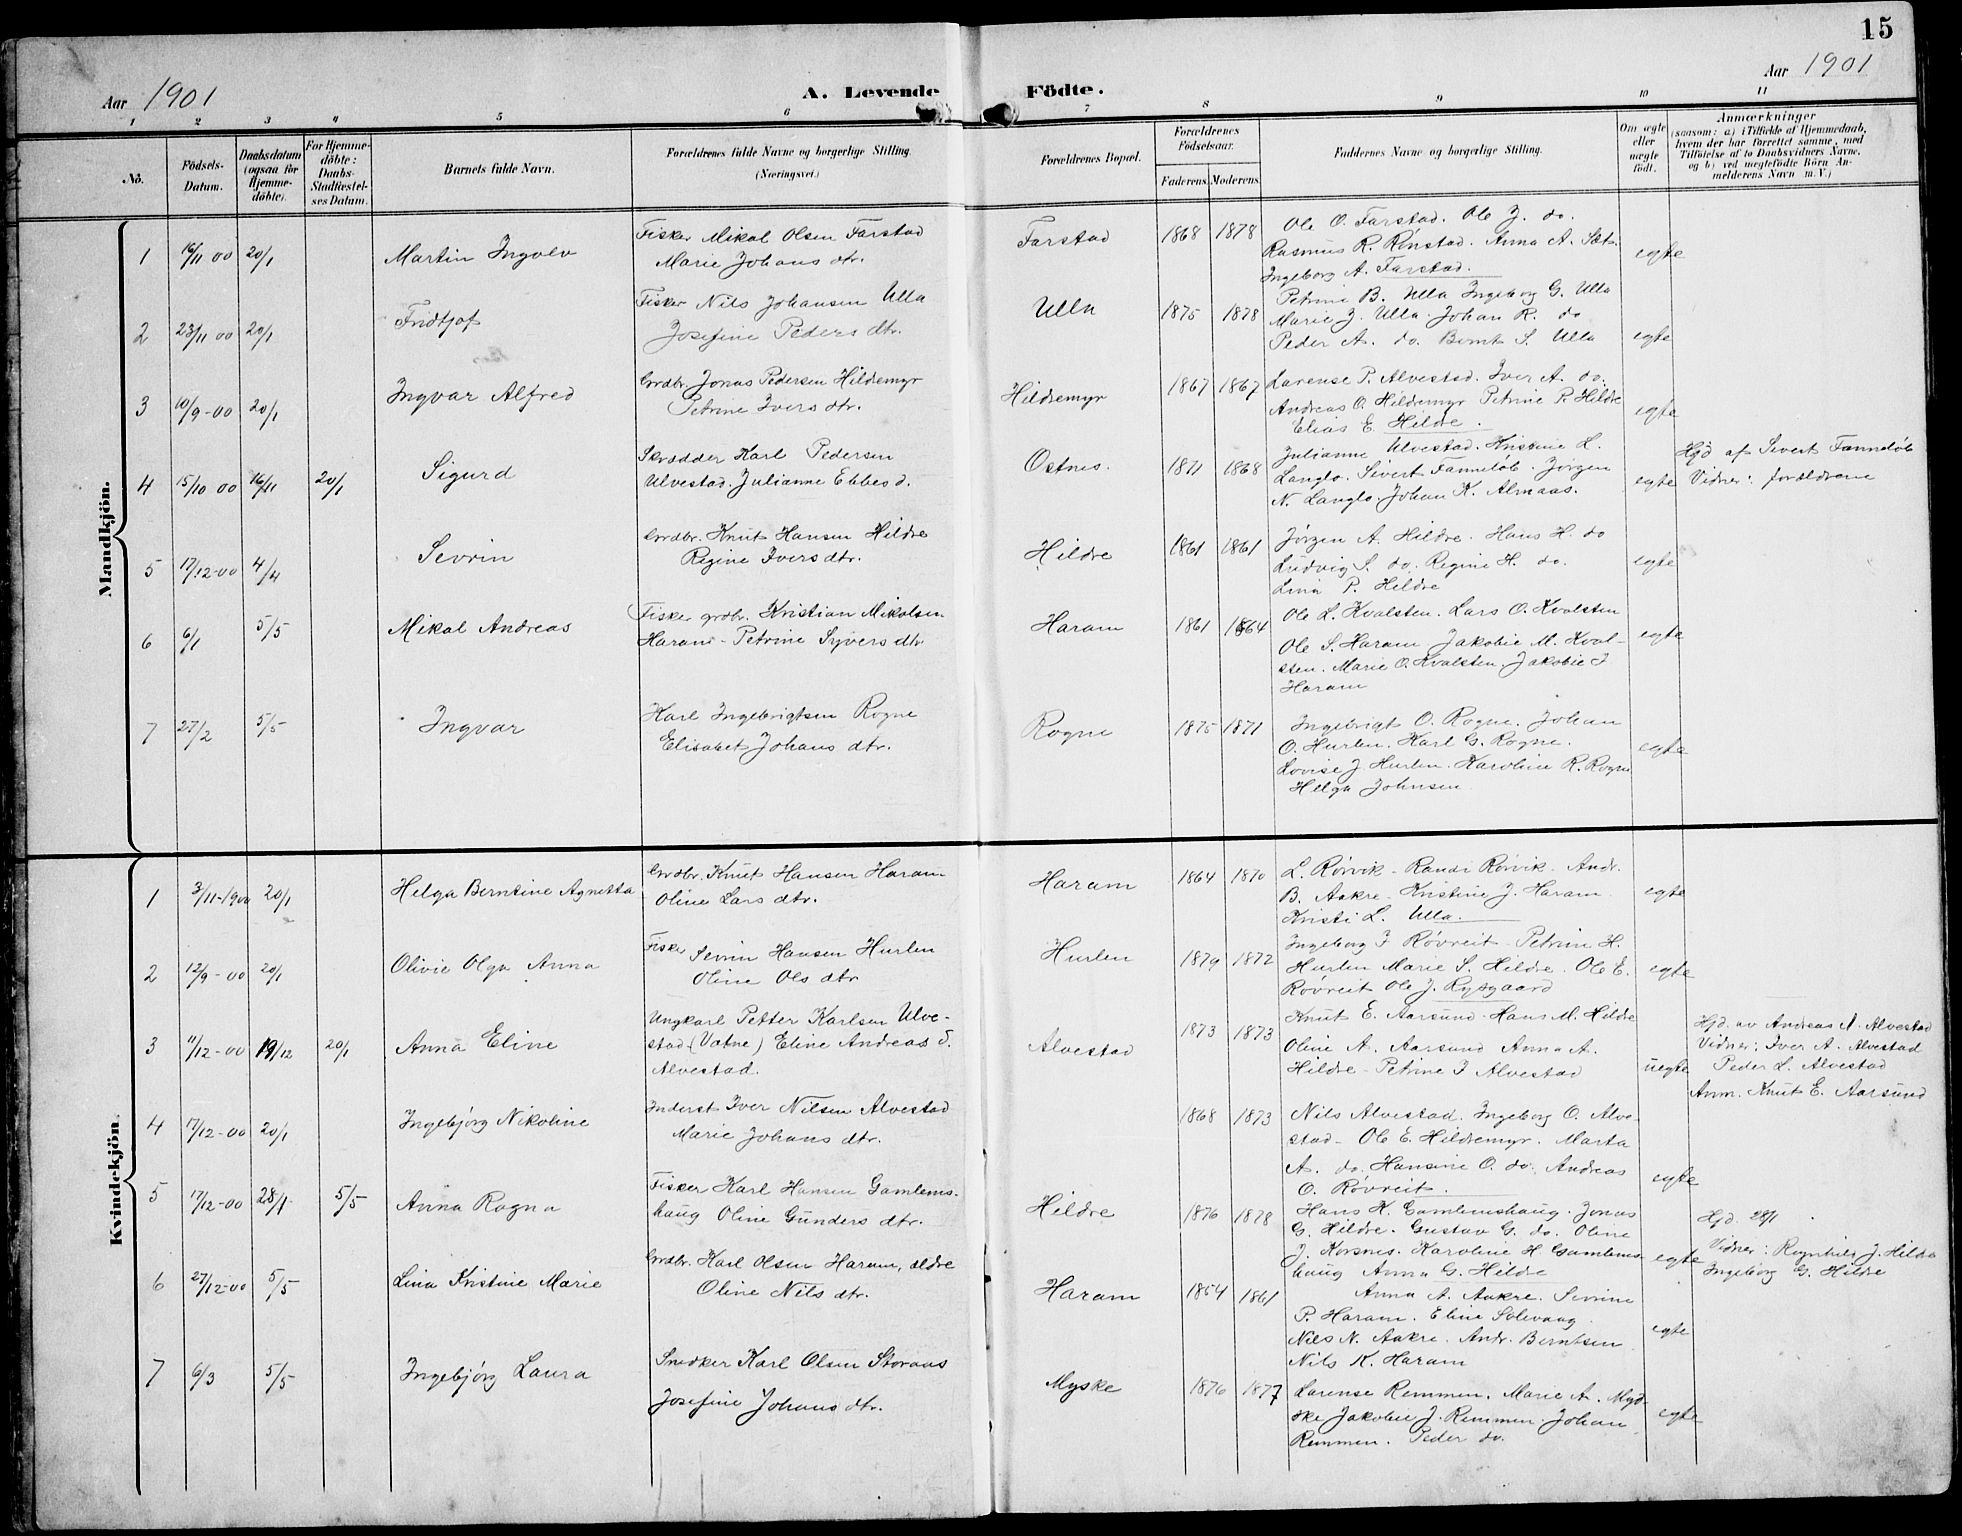 15
Aar 1901
A. Levende Födte.
Aar 1901
1 2 3 4 5 6 7 8 9 10 11
No.
Födsels-Datum.
Daabsdatum (ogsaa for Hjemmedöbte).
For Hjemmedöbte: Daabs-Stadfæstelses Datum.
Barnets fulde Navn.
Forældrenes fulde Navne og borgerlige Stilling
(Næringsvei.)
Forældrenes Bopæl.
Forældrenes Födselsaar.
Faderens. Moderens.
Faddernes Navne og borgerlige Stilling.
Om ægte eller uægte födt.
Anmærkninger
(saasom: a) i Tilfælde af Hjemmedaab, hvem der har forrettet samme, med Tilföielse af to Daabsvidners Navne, og b) ved uegtefödte Börn Anmelderens Navn m. V.)
Mandkjön.
1 16/11 00 20/1 Martin Ingolv
Fisker Mikal Olsen Farstad
Marie Johans dtr.
Farstad 1868 1878
Ole O. Farstad. Ole J. do.
Rasmus R. Rönstad. Anna A. Sæt.
Ingeborg A. Farstad.
egte
2 23/11 00 20/1 Fridtjof
Fisker Nils Johansen Ulla
Josefine Peders dtr.
Ulla 1875 1878
Petrine B. Ulla Ingeborg G. Ulla
Marie J. Ulla. Johan R. do
Peder A. do. Bernt S. Ulla
egte
3 10/9-00 20/1 Ingvar Alfred
Grdbr. Jonas Pedersen Hildremyr
Petrine Ivers dtr.
Hildremyr 1867 1867
Larense P. Alvestad. Iver A. do.
Andreas O. Hildremyr Petrine P. Hildre
Elias E. Hildre.
egte
4 15/10 00 16/11 20/1 Sigurd
Skrædder Karl Pedersen
Ulvestad. Julianne Ebbes d.
Östnes. 1871 1868
Julianne Ulvestad. Kristine L.
Langlo. Sivert Fannelöb. Jörgen
N. Langlo. Johan K. Almaas.
egte
Hjd af Sivert Fannelöb
Vidner: forældrene
5 17/12-00 4/4 Sevrin
Grdbr. Knut Hansen Hildre
Regine Ivers dtr.
Hildre 1861 1861
Jörgen A. Hildre. Hans H. do
Ludvig S. do. Regine H. do.
Lina P. Hildre
egte
6 6/1 5/5 Mikal Andreas
Fisker grdbr. Kristian Mikalsen
Haram - Petrine Syvers dtr
Haram 1861 1864
Ole L. Kvalsten. Lars O. Kvalsten
Ole S. Haram Jakobie M. Kval-
sten. Marie O. Kvalsten. Jakobie I
Haram
egte
7 27/2 5/5 Ingvar
Karl Ingebrigtsen Rogne
Elisabet Johans dtr.
Rogne 1875 1871
Ingebrigt O. Rogne. Johan
O. Hurlen. Karl G. Rogne.
Lovise J. Hurlen. Karoline R. Rogne
Helga Johnsen
egte
Kvindekjön.
1 3/11-1900 20/1 Helga Berntine Agnetta
Grdbr. Knut Hansen Haram
Oline Lars dtr.
Haram 1864 1870
L. Rörvik - Randi Rörvik. Andr.
B. Aakre - Kristine J. Haram
Kristi L. Ulla.
egte
2 12/9-00 20/1 Olivie Olga Anna
Fisker Sevrin Hansen Hurlen
Oline Ols dtr
Hurlen 1879 1872
Ingeborg I Rövreit - Petrine H.
Hurlen Marie S. Hildre. Ole E.
Rövreit Ole J. Rysgaard
egte
3 11/12-00 19/12 20/1 Anna Eline
Ungkarl Petter Karlsen Ulve-
stad (Vatne) Eline Andreas d.
Alvestad.
Alvestad 1873 1873
Knut E. Aarsund - Hans M. Hildre
Oline A. Aarsund Anna A.
Hildre - Petrine I Alvestad
uegte
Hjd. av Andreas A. Alvestad
Vidner: Iver A. Alvestad
Peder L. Alvestad
Anm. Knut E. Aarsund
4 17/12-00 20/1 Ingebjörg Nikoline
Inderst Iver Nilsen Alvestad
Marie Johans dtr.
1868 1873
Nils Alvestad. Ingeborg O. Alve-
stad - Ole E. Hildremyr. Marta
A. do. Hansine O. do. Andreas
O. Rövreit.
egte
5 17/12-00 28/1 5/5 Anna Ragna
Fisker Karl Hansen Gamlems-
haug Oline Gunders dtr.
Hildre 1876 1878
Hans K. Gamlemshaug. Jonas
G. Hildre. Gustav G. do. Oline
J. Korsnes. Karoline H Gamlems-
haug Anna G. Hildre
egte
Hjd. 28/1
Vidner: Ragnhild J. Hildre
Ingeborg G. Hildre
6 27/12-00 5/5 Lina Kristine Marie
Grdbr. Karl Olsen Haram, ældre
Oline Nils dtr.
Haram 1854 1861
Anna A. Aakre. Sevrine
P. Haram. Eline Solevaag.
Nils N. Aakre. Andr. Berntsen
Nils K. Haram
egte
7 6/3 5/5 Ingebjörg Laura
Snedker Karl Olsen Storaas
Josefine Johans dtr.
Myske 1876 1877
Larense Remmen. Marie A. Myd-
ske Jakobie J. Remmen. Johan
Remmen. Peder do.
egte